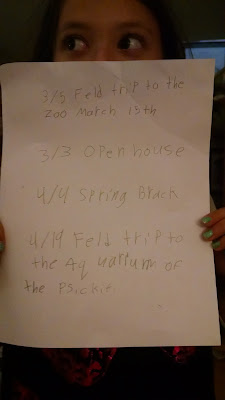 3/5 Feld trip to the
Zoo March 15th
3/3 Open house
4/4 Spring Brack
4/19 Feld trip to
the Aq uarium of
the